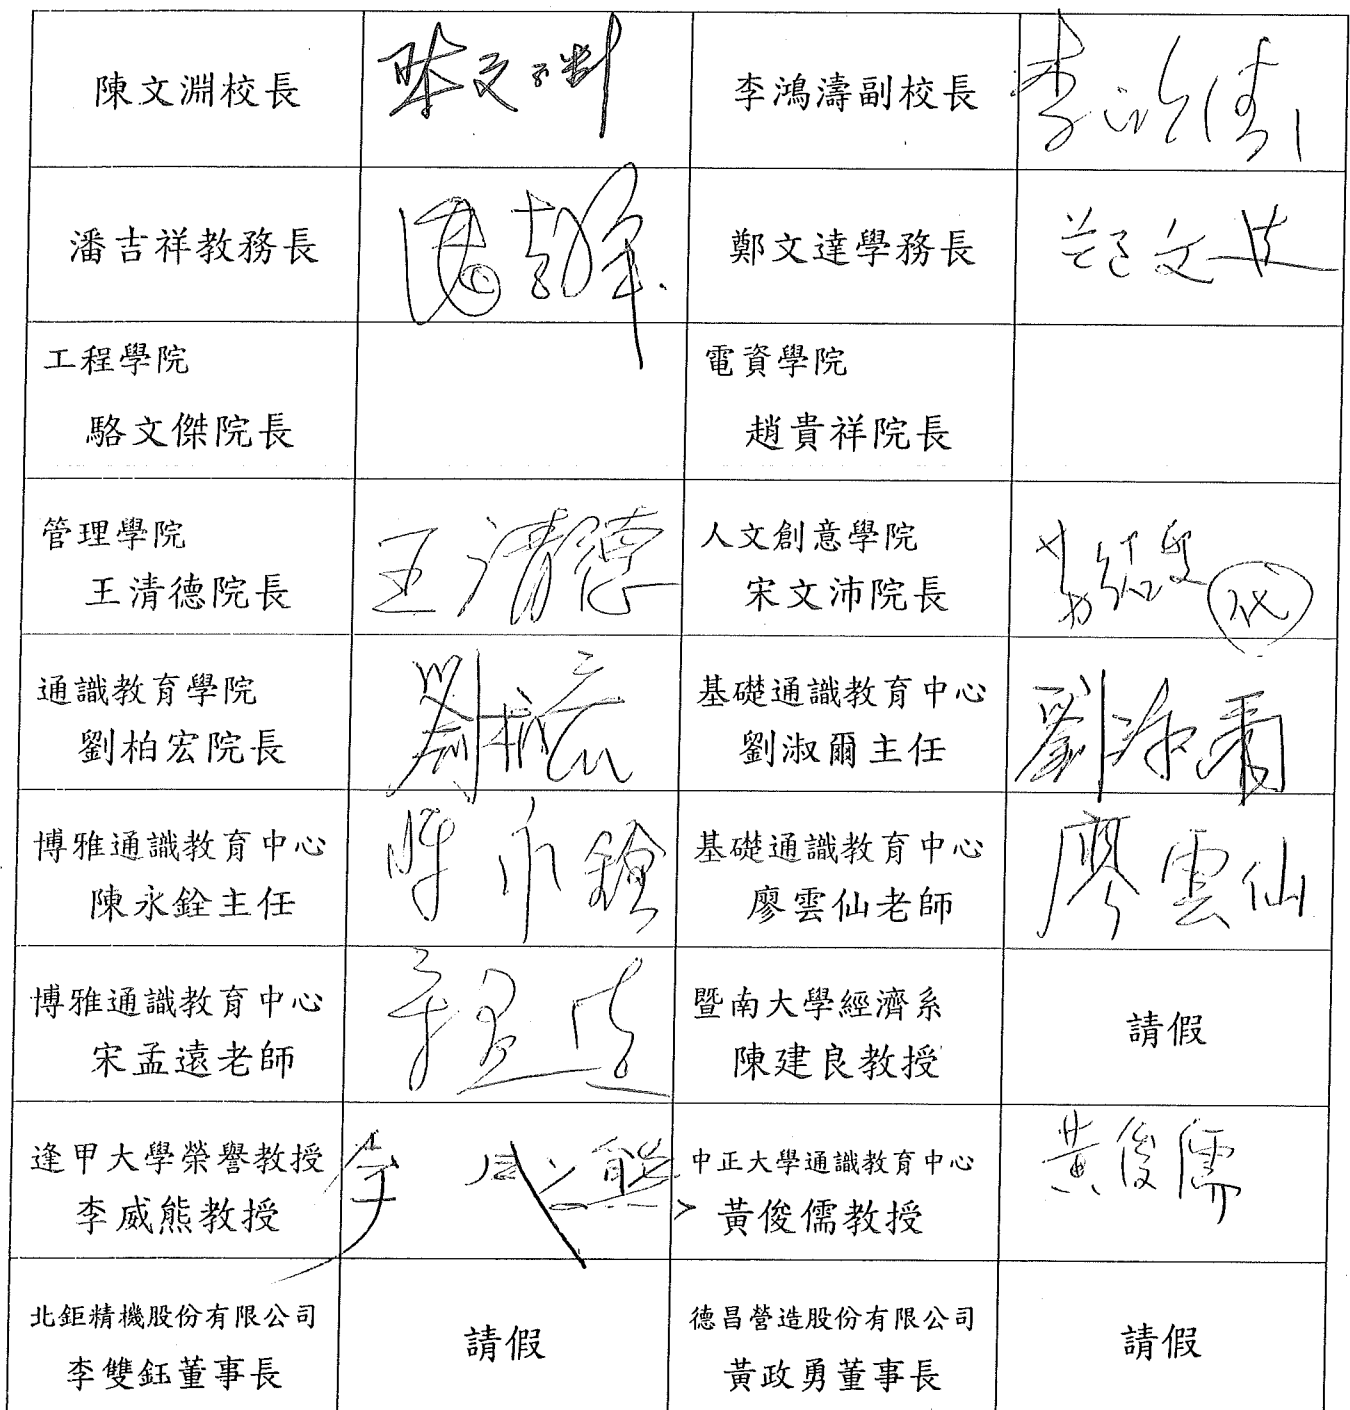 陳文淵校長
陳文淵
李鴻濤副校長
李鴻濤
潘吉祥教務長
潘吉祥
鄭文達學務長
鄭文達
工程學院
駱文傑院長
電資學院
趙貴祥院長
管理學院
王清德院長
王清德
人文創意學院
宋文沛院長
代
通識教育學院
劉柏宏院長
劉柏宏
基礎通識教育中心
劉淑爾主任
劉淑爾
博雅通識教育中心
陳永銓主任
陳永銓
基礎通識教育中心
廖雲仙老師
廖雲仙
博雅通識教育中心
宋孟遠老師
宋孟遠
暨南大學經濟系
陳建良教授
請假
逢甲大學榮譽教授
李威熊教授
李威熊
中正大學通識教育中心
黃俊儒教授
黃俊儒
北鉅精機股份有限公司
李雙鈺董事長
請假
德昌營造股份有限公司
黃政勇董事長
請假